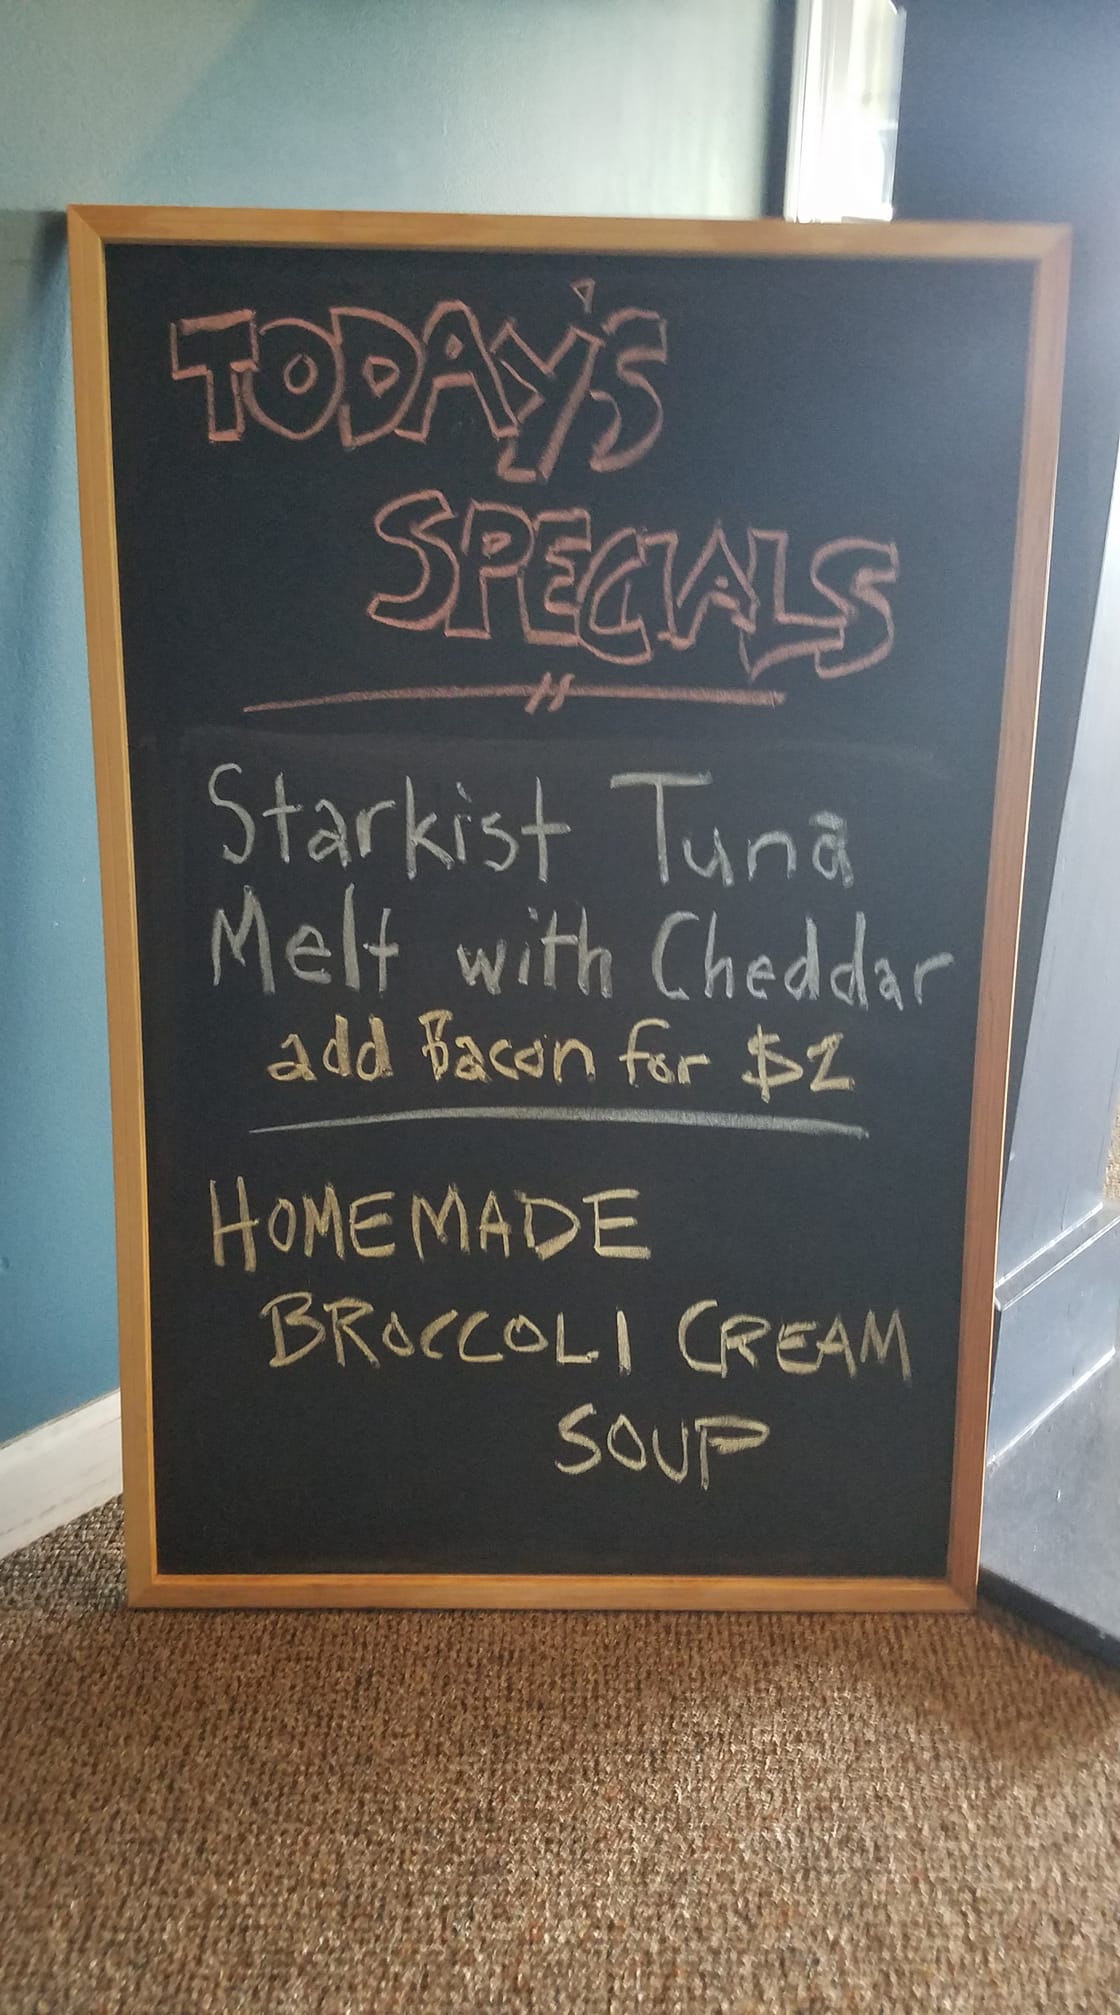 TODAY'S
SPECIALS
Starkist Tuna
Melt with Cheddar
add Bacon for $1
HOMEMADE
BROCCOLI CREAM
SOUP